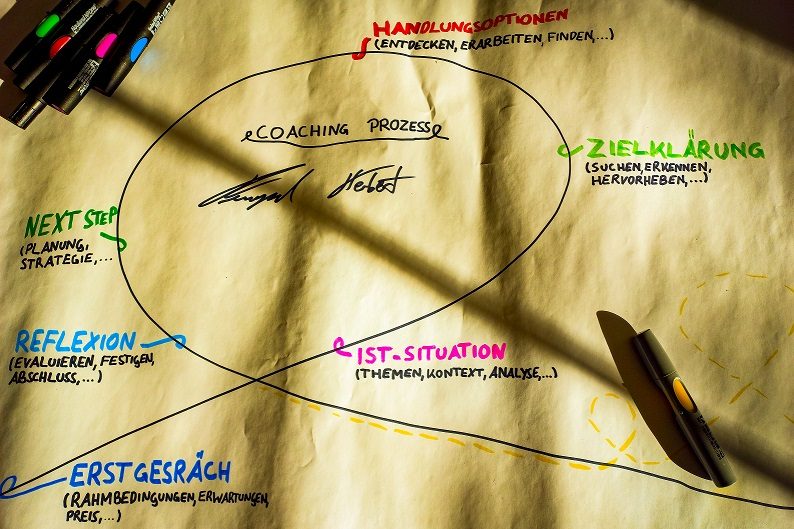 HANDLUNGSOPTIONEN
(ENTDECKEN, ERARBEITEN, FINDEN,...)
COACHING PROZESSE
ZIELKLÄRUNG
(SUCHEN, ERKENNEN,
HERVORHEBEN,...)
NEXT STEP
(PLANUNG,
STRATEGIE,...
REFLEXION
(EVALUIEREN, FESTIGEN,
ABSCHLUSS,...)
IST-SITUATION
(THEMEN, KONTEXT, ANALYSE,...)
ERSTGESRÄCH
(RAHMBEDINGUNGEN, ERWARTUNGEN,
PREIS,...)